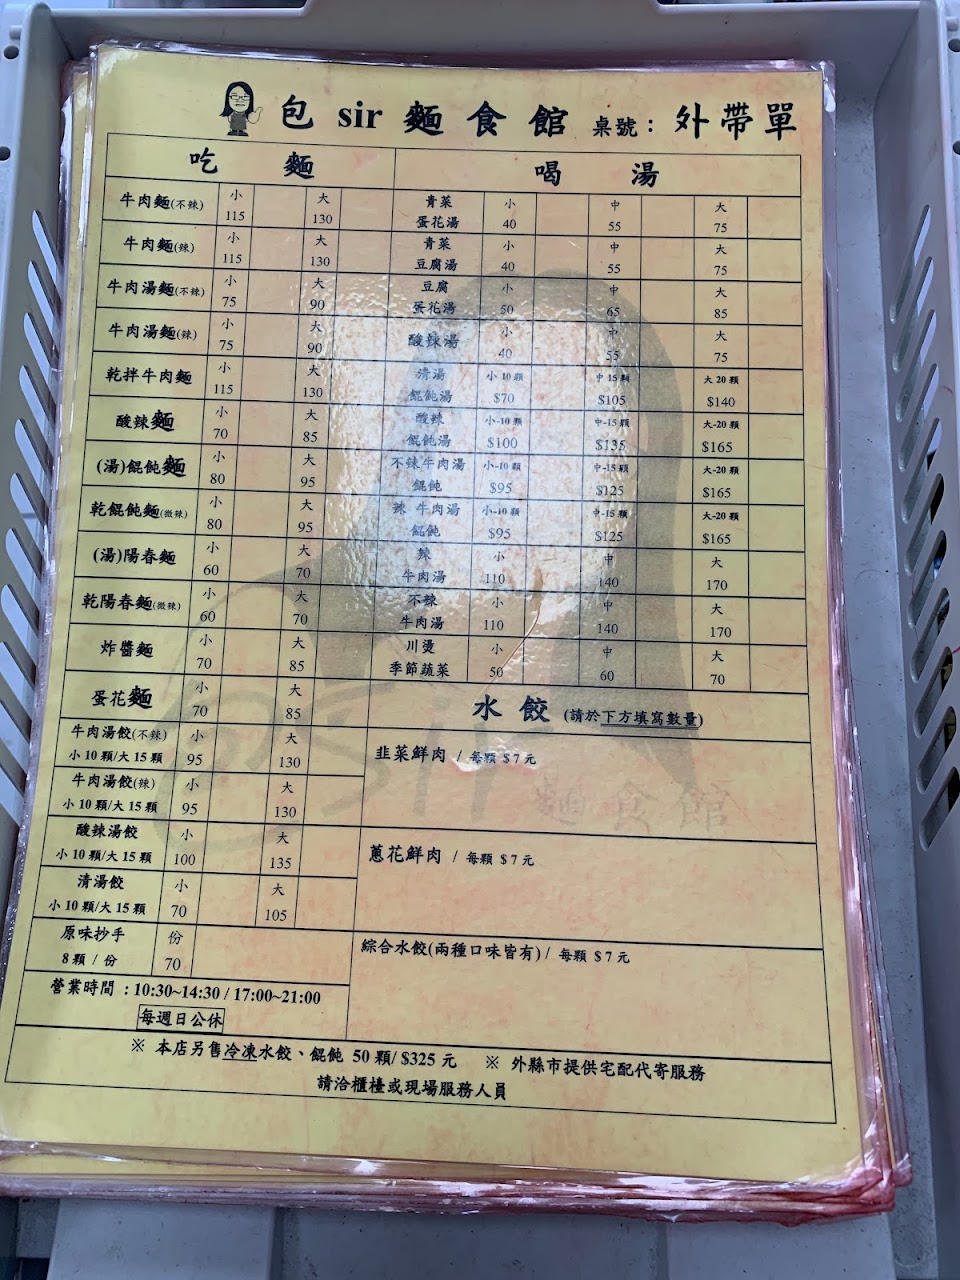 包 sir 麵 食 館 桌號： 外帶單
吃 麵
牛肉麵(不辣) 小 115 大 130
牛肉麵(辣) 小 115 大 130
牛肉湯麵(不辣) 小 75 大 90
牛肉湯麵(辣) 小 75 大 90
乾拌牛肉麵 小 115 大 130
酸辣麵 小 70 大 85
(湯)餛飩麵 小 80 大 95
乾餛飩麵(微辣) 小 80 大 95
(湯)陽春麵 小 60 大 70
乾陽春麵(微辣) 小 60 大 70
炸醬麵 小 70 大 85
蛋花麵 小 70 大 85
牛肉湯餃(不辣) 小 10 顆/大 15 顆 小 95 大 130
牛肉湯餃(辣) 小 10 顆/大 15 顆 小 95 大 130
酸辣湯餃 小 10 顆/大 15 顆 小 100 大 135
清湯餃 小 10 顆/大 15 顆 小 70 大 105
原味抄手 8 顆 / 份 份 70
營業時間：10:30~14:30 / 17:00~21:00
每週日公休
喝 湯
青菜蛋花湯 小 40 中 55 大 75
青菜豆腐湯 小 40 中 55 大 75
豆腐蛋花湯 小 50 中 65 大 85
酸辣湯 小 40 中 55 大 75
清湯餛飩湯 小 10 顆 $70 中 15 顆 $105 大 20 顆 $140
酸辣餛飩湯 小-10 顆 $100 中-15 顆 $135 大-20 顆 $165
不辣牛肉湯餛飩 小-10 顆 $95 中-15 顆 $125 大-20 顆 $165
辣 牛肉湯餛飩 小-10 顆 $95 中-15 顆 $125 大-20 顆 $165
辣牛肉湯 小 110 中 140 大 170
不辣牛肉湯 小 110 中 140 大 170
川燙季節蔬菜 小 50 中 60 大 70
水 餃 (請於下方填寫數量)
韭菜鮮肉 / 每顆 $7元
蔥花鮮肉 / 每顆 $7元
綜合水餃(兩種口味皆有) / 每顆 $7元
sir
麵食館
※ 本店另售冷凍水餃、餛飩 50 顆/ $325 元 ※ 外縣市提供宅配代寄服務
請洽櫃檯或現場服務人員